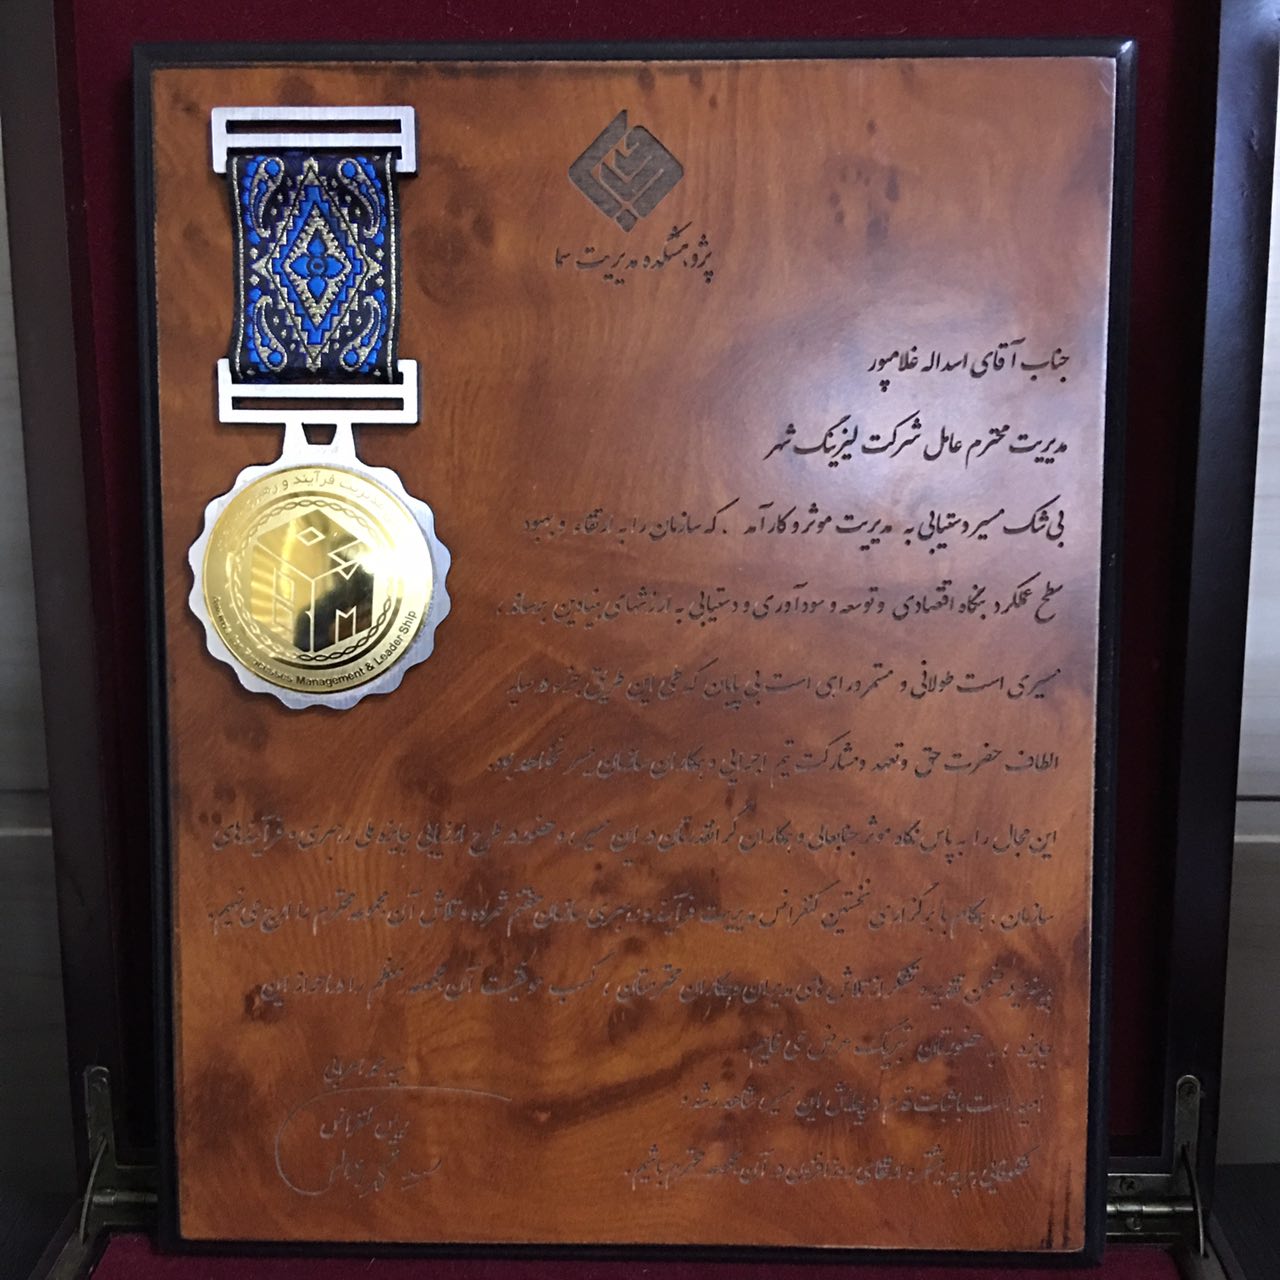 پژوهشکده مدیریت سما
جناب آقای اسداله غلامپور
مدیریت محترم عامل شرکت لیزینگ شهر
بی شک مسیر دستیابی به مدیریت موثر و کارآمد ، که سازمان را به ارتقاء و بهبود
سطح عملکرد بنگاه اقتصادی و توسعه و سودآوری و دستیابی به ارزشهای بنیادین برساند ،
مسیری است طولانی و مستمر و راهی است بی پایان که طی این طریق جز در سایه
الطاف حضرت حق و تعهد و مشارکت تیم اجرایی و همکاران سازمان میسر نخواهد بود.
این مجال را به پاس نگاه موثر جنابعالی و همکاران گرانقدرتان در این مسیر و حضور در طرح ارزیابی جایزه ملی رهبری و فرآیندهای
سازمان ، همگام با برگزاری نخستین کنفرانس مدیریت فرآیند و رهبری سازمان مغتنم شمرده و تلاش آن مجموعه محترم را ارج می نهیم.
ضمن تقدیر و تشکر از تلاش های مدیران و همکاران محترمتان ، کسب موفقیت آن مجموعه معظم را در احراز این
جایزه ، به حضورتان تبریک عرض می نمایم.
امید است با ثبات قدم در پیمایش این مسیر شاهد رشد و
شکوفایی هر چه بیشتر و ارتقای روز افزون در آن مجموعه محترم باشیم.
سید محمد
مدیریت فرآیند و رهبری
Processes Management & Leader Ship